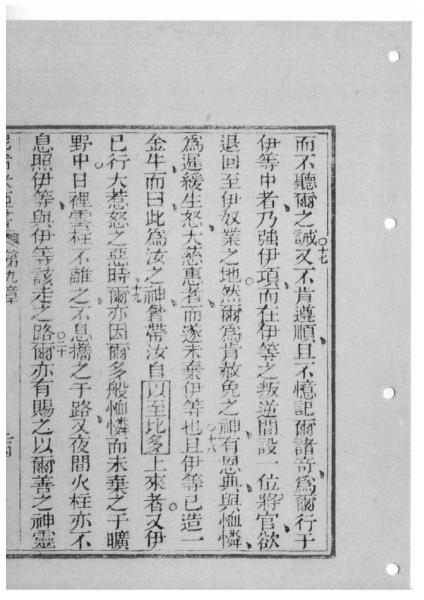 而不聽爾之誡又不肯遵順且不憶記爾諸奇爲爾行于
十七
伊等中者乃強伊項而在伊等之叛逆開設一位將官欲
退回至伊奴業之地然爾爲肯赦免之神有恩典與恤憐
爲遲緩生怒大慈惠者而遂未棄伊等也且伊等已造一
十八
金牛而曰此爲汝之神曾帶汝自以至比多上來者又伊
已行大惹怒之惡時爾亦因爾多般恤憐而未棄之于曠
十九
野中日裡雲柱不離之不息擕之于路又夜間火柱亦不
息照伊等與伊等該走之路爾亦有賜之以爾善之神靈
二十
第九章